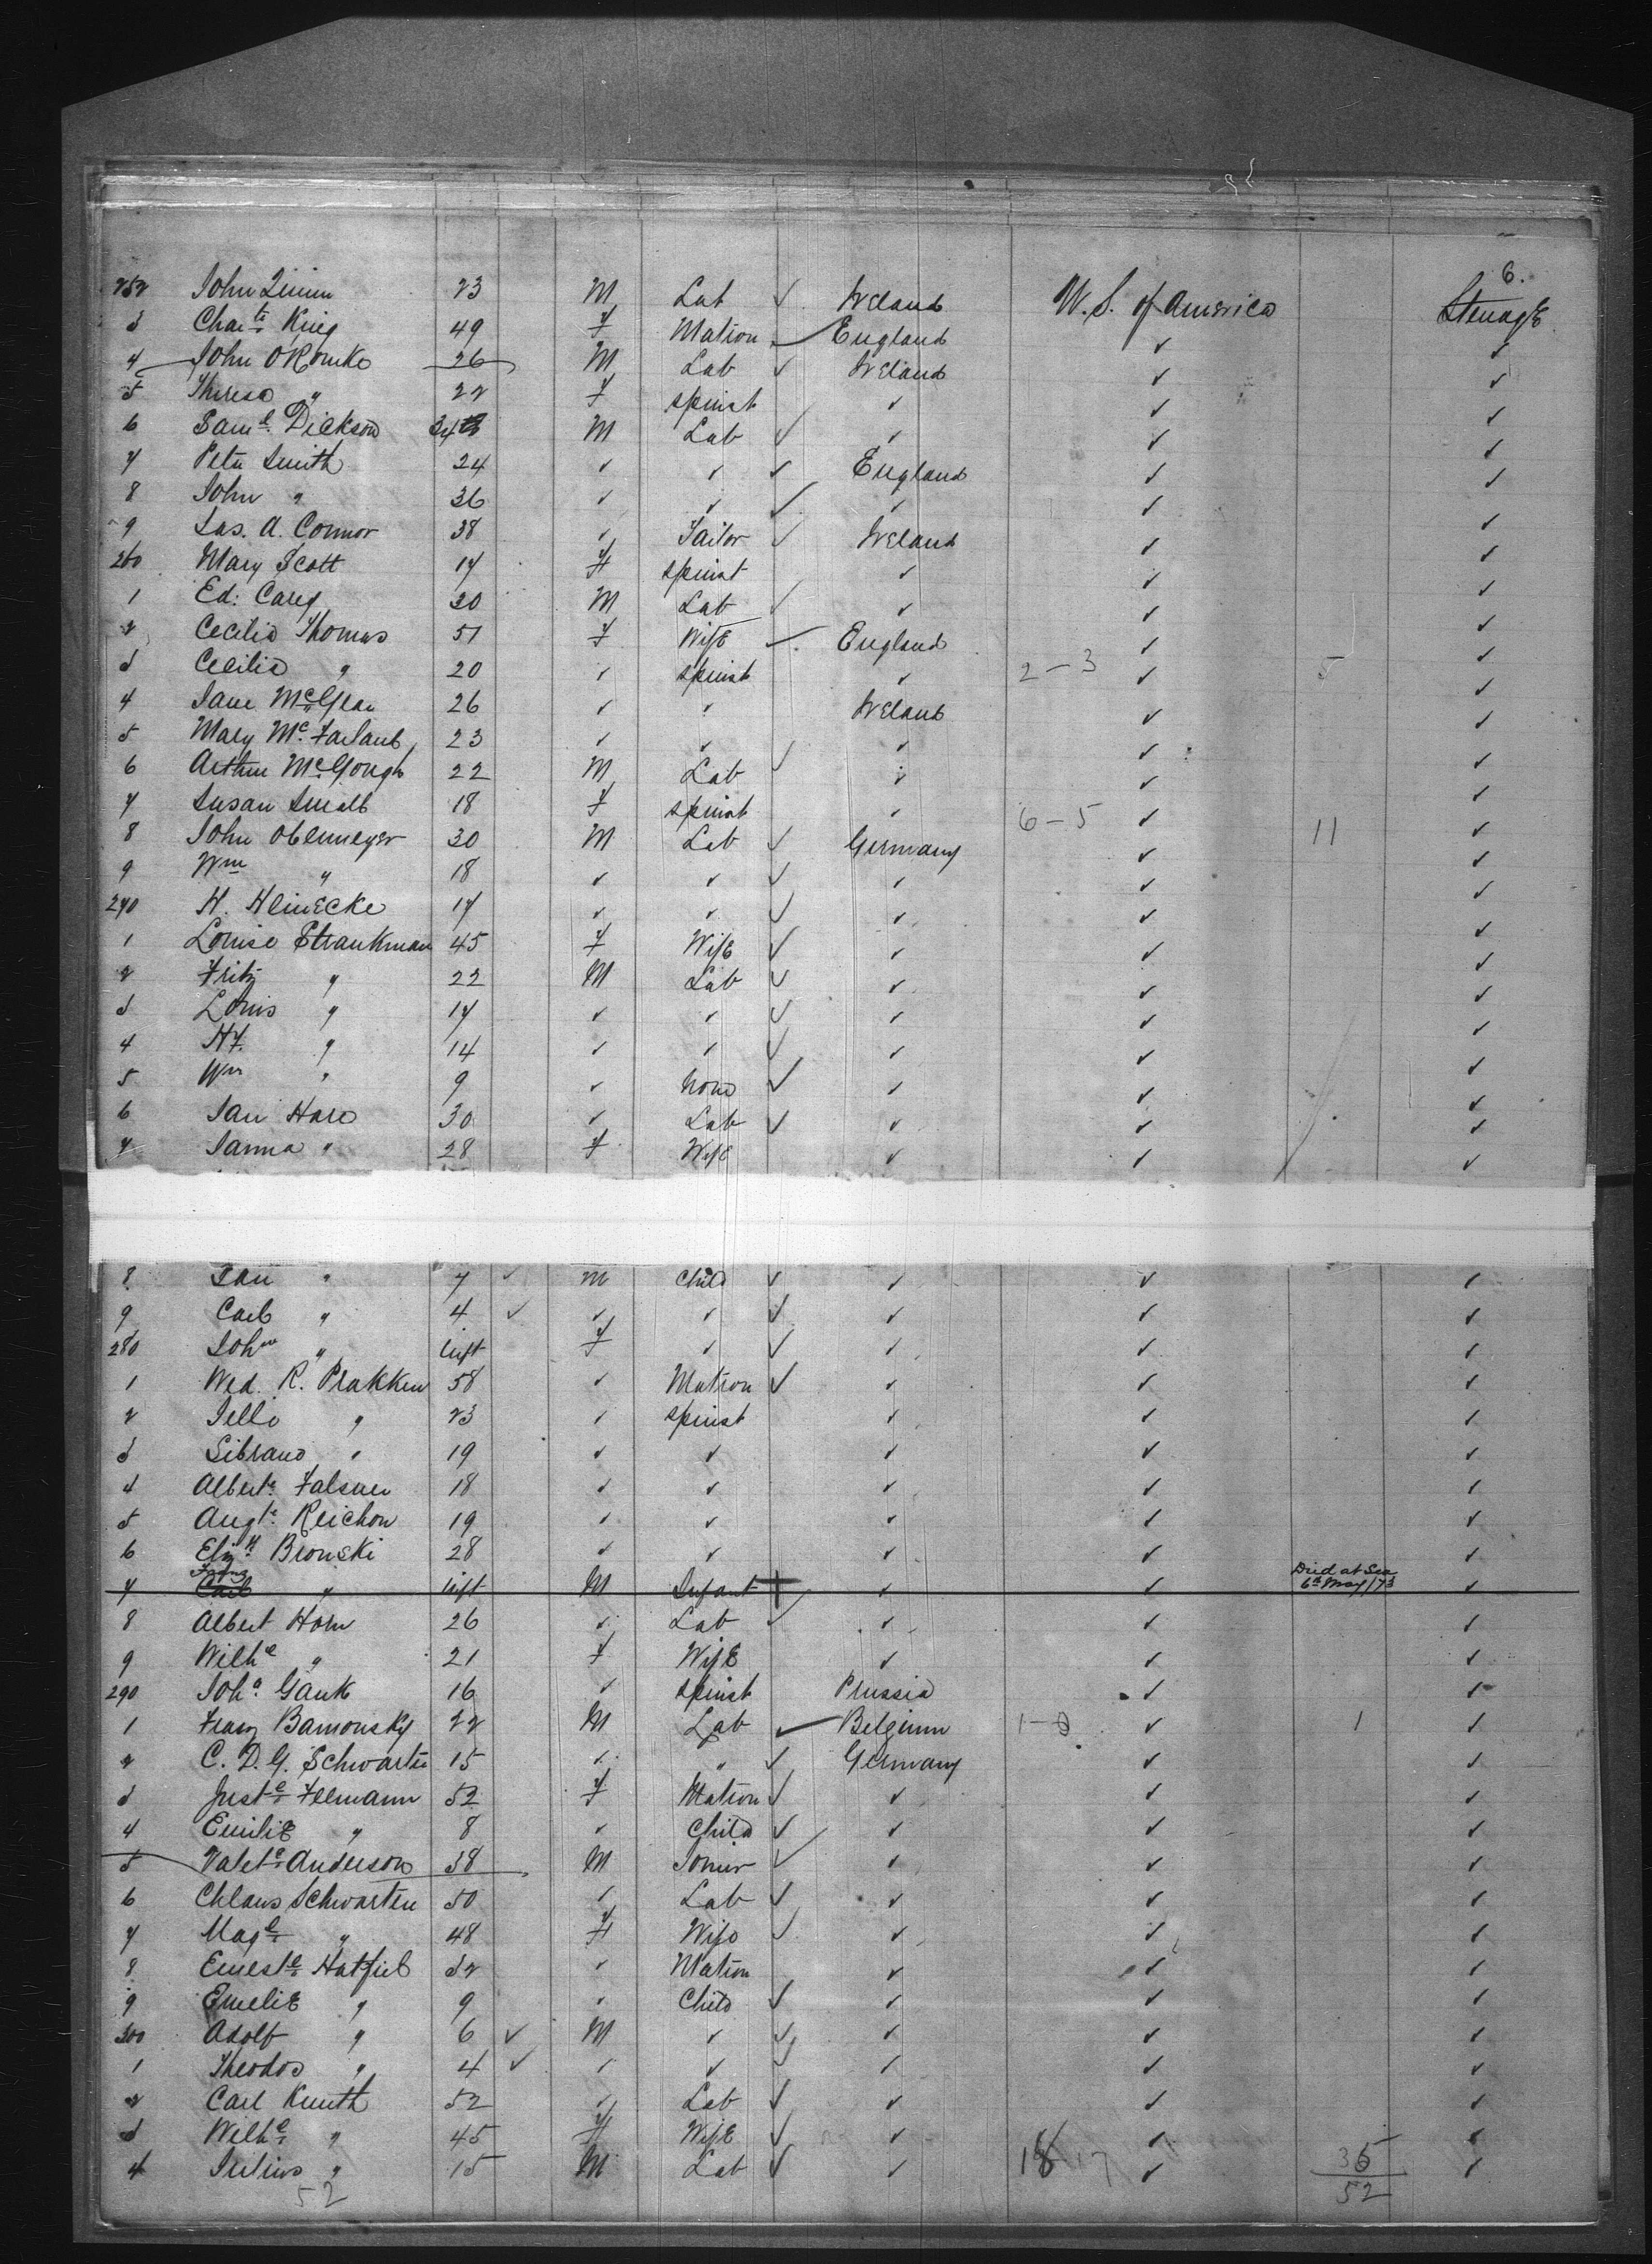 6.
252 John Quinn 23 M Lab ✓ Ireland U. S. of America Steerage
3 Char.te King 49 F Matron ✓ England ✓ ✓
4 John O'Rourke 26 M Lab ✓ Ireland ✓ ✓
5 Theresa " 22 F Spinst ✓ ✓ ✓
6 Sam.l Dickson M Lab ✓ ✓ ✓ ✓
7 Peter Smith 24 ✓ ✓ ✓ England ✓ ✓
8 John " 36 ✓ ✓ ✓ ✓ ✓ ✓
9 Jas. A. Connor 38 ✓ Tailor ✓ Ireland ✓ ✓
260 Mary Scott 17 F Spinst ✓ ✓ ✓
1 Ed: Carey 30 M Lab ✓ ✓ ✓ ✓
2 Cecilia Thomas 51 F Wife ✓ England ✓ ✓
3 Cecilia " 20 ✓ Spinst ✓ 2-3 ✓ 5 ✓
4 Jane 26 ✓ ✓ Ireland ✓ ✓
5 Mary McFarland 23 ✓ ✓ ✓ ✓ ✓
6 Arthur McGough 22 M Lab ✓ ✓ ✓ ✓
7 Susan Small 18 F Spinst ✓ 6-5 ✓ 11 ✓
8 John Obermeyer 30 M Lab ✓ Germany ✓ ✓
9 Wm " 18 ✓ ✓ ✓ ✓ ✓ ✓
270 H. Heinecke 17 ✓ ✓ ✓ ✓ ✓ ✓
1 Louise Strankman 45 F Wife ✓ ✓ ✓ ✓
2 Fritz " 22 M Lab ✓ ✓ ✓ ✓
3 Louis " 17 ✓ ✓ ✓ ✓ ✓ ✓
4 H.F. " 14 ✓ ✓ ✓ ✓ ✓ ✓
5 Wm " 9 ✓ None ✓ ✓ ✓ ✓
6 Jan Hare 30 ✓ Lab ✓ ✓ ✓ ✓
7 Janna " 28 F Wife ✓ ✓ ✓
8 Jan " 7 ✓ M Child ✓ ✓ ✓ ✓
9 Carl " 4 ✓ ✓ ✓ ✓ ✓ ✓ ✓
280 Joh.n " inft F ✓ ✓ ✓ ✓ ✓
1 Wed. R. Prakken 58 ✓ Matron ✓ ✓ ✓ ✓
2 Jello " 23 ✓ Spinst ✓ ✓ ✓
3 Sibrand " 19 ✓ ✓ ✓ ✓ ✓
4 Albert.e 18 ✓ ✓ ✓ ✓ ✓
5 Aug.te Reichow 19 ✓ ✓ ✓ ✓ ✓
6 Eliz.h Bronski 28 ✓ ✓ ✓ ✓ ✓
7 Carl Franz " inft M Infant + ✓ ✓ Died at Sea 6th May/73 ✓
8 Albert Horn 26 ✓ Lab ✓ ✓ ✓ ✓
9 Wilh.e " 21 F Wife ✓ ✓ ✓
290 Joh.a Gank 16 ✓ Spinst Prussia ✓ ✓
1 Franz Bamonsky 22 M Lab ✓ Belgium 1-0 ✓ 1 ✓
2 C. D. G. Schwarten 15 ✓ " ✓ Germany ✓ ✓
3 Just.e Fellmann 52 F Matron ✓ ✓ ✓ ✓
4 Emilie " 8 ✓ Child ✓ ✓ ✓ ✓
5 Valet.e Anderson 38 M Joiner ✓ ✓ ✓ ✓
6 Chlaus Schwarten 50 ✓ Lab ✓ ✓ ✓ ✓
7 Mag.e " 48 F Wife ✓ ✓ ✓ ✓
8 Ernest.e Hatfiel 32 ✓ Matron ✓ ✓ ✓
9 Emelie " 9 ✓ Child ✓ ✓ ✓ ✓
300 Adolf " 6 ✓ M ✓ ✓ ✓ ✓ ✓
1 Theodor " 4 ✓ ✓ ✓ ✓ ✓ ✓ ✓
2 Carl Kunth 52 ✓ Lab ✓ ✓ ✓ ✓
3 Wilh.e " 45 F Wife ✓ ✓ ✓ ✓
4 Julius " 15 M Lab ✓ ✓ 18 17 ✓ 35 ✓
52 52